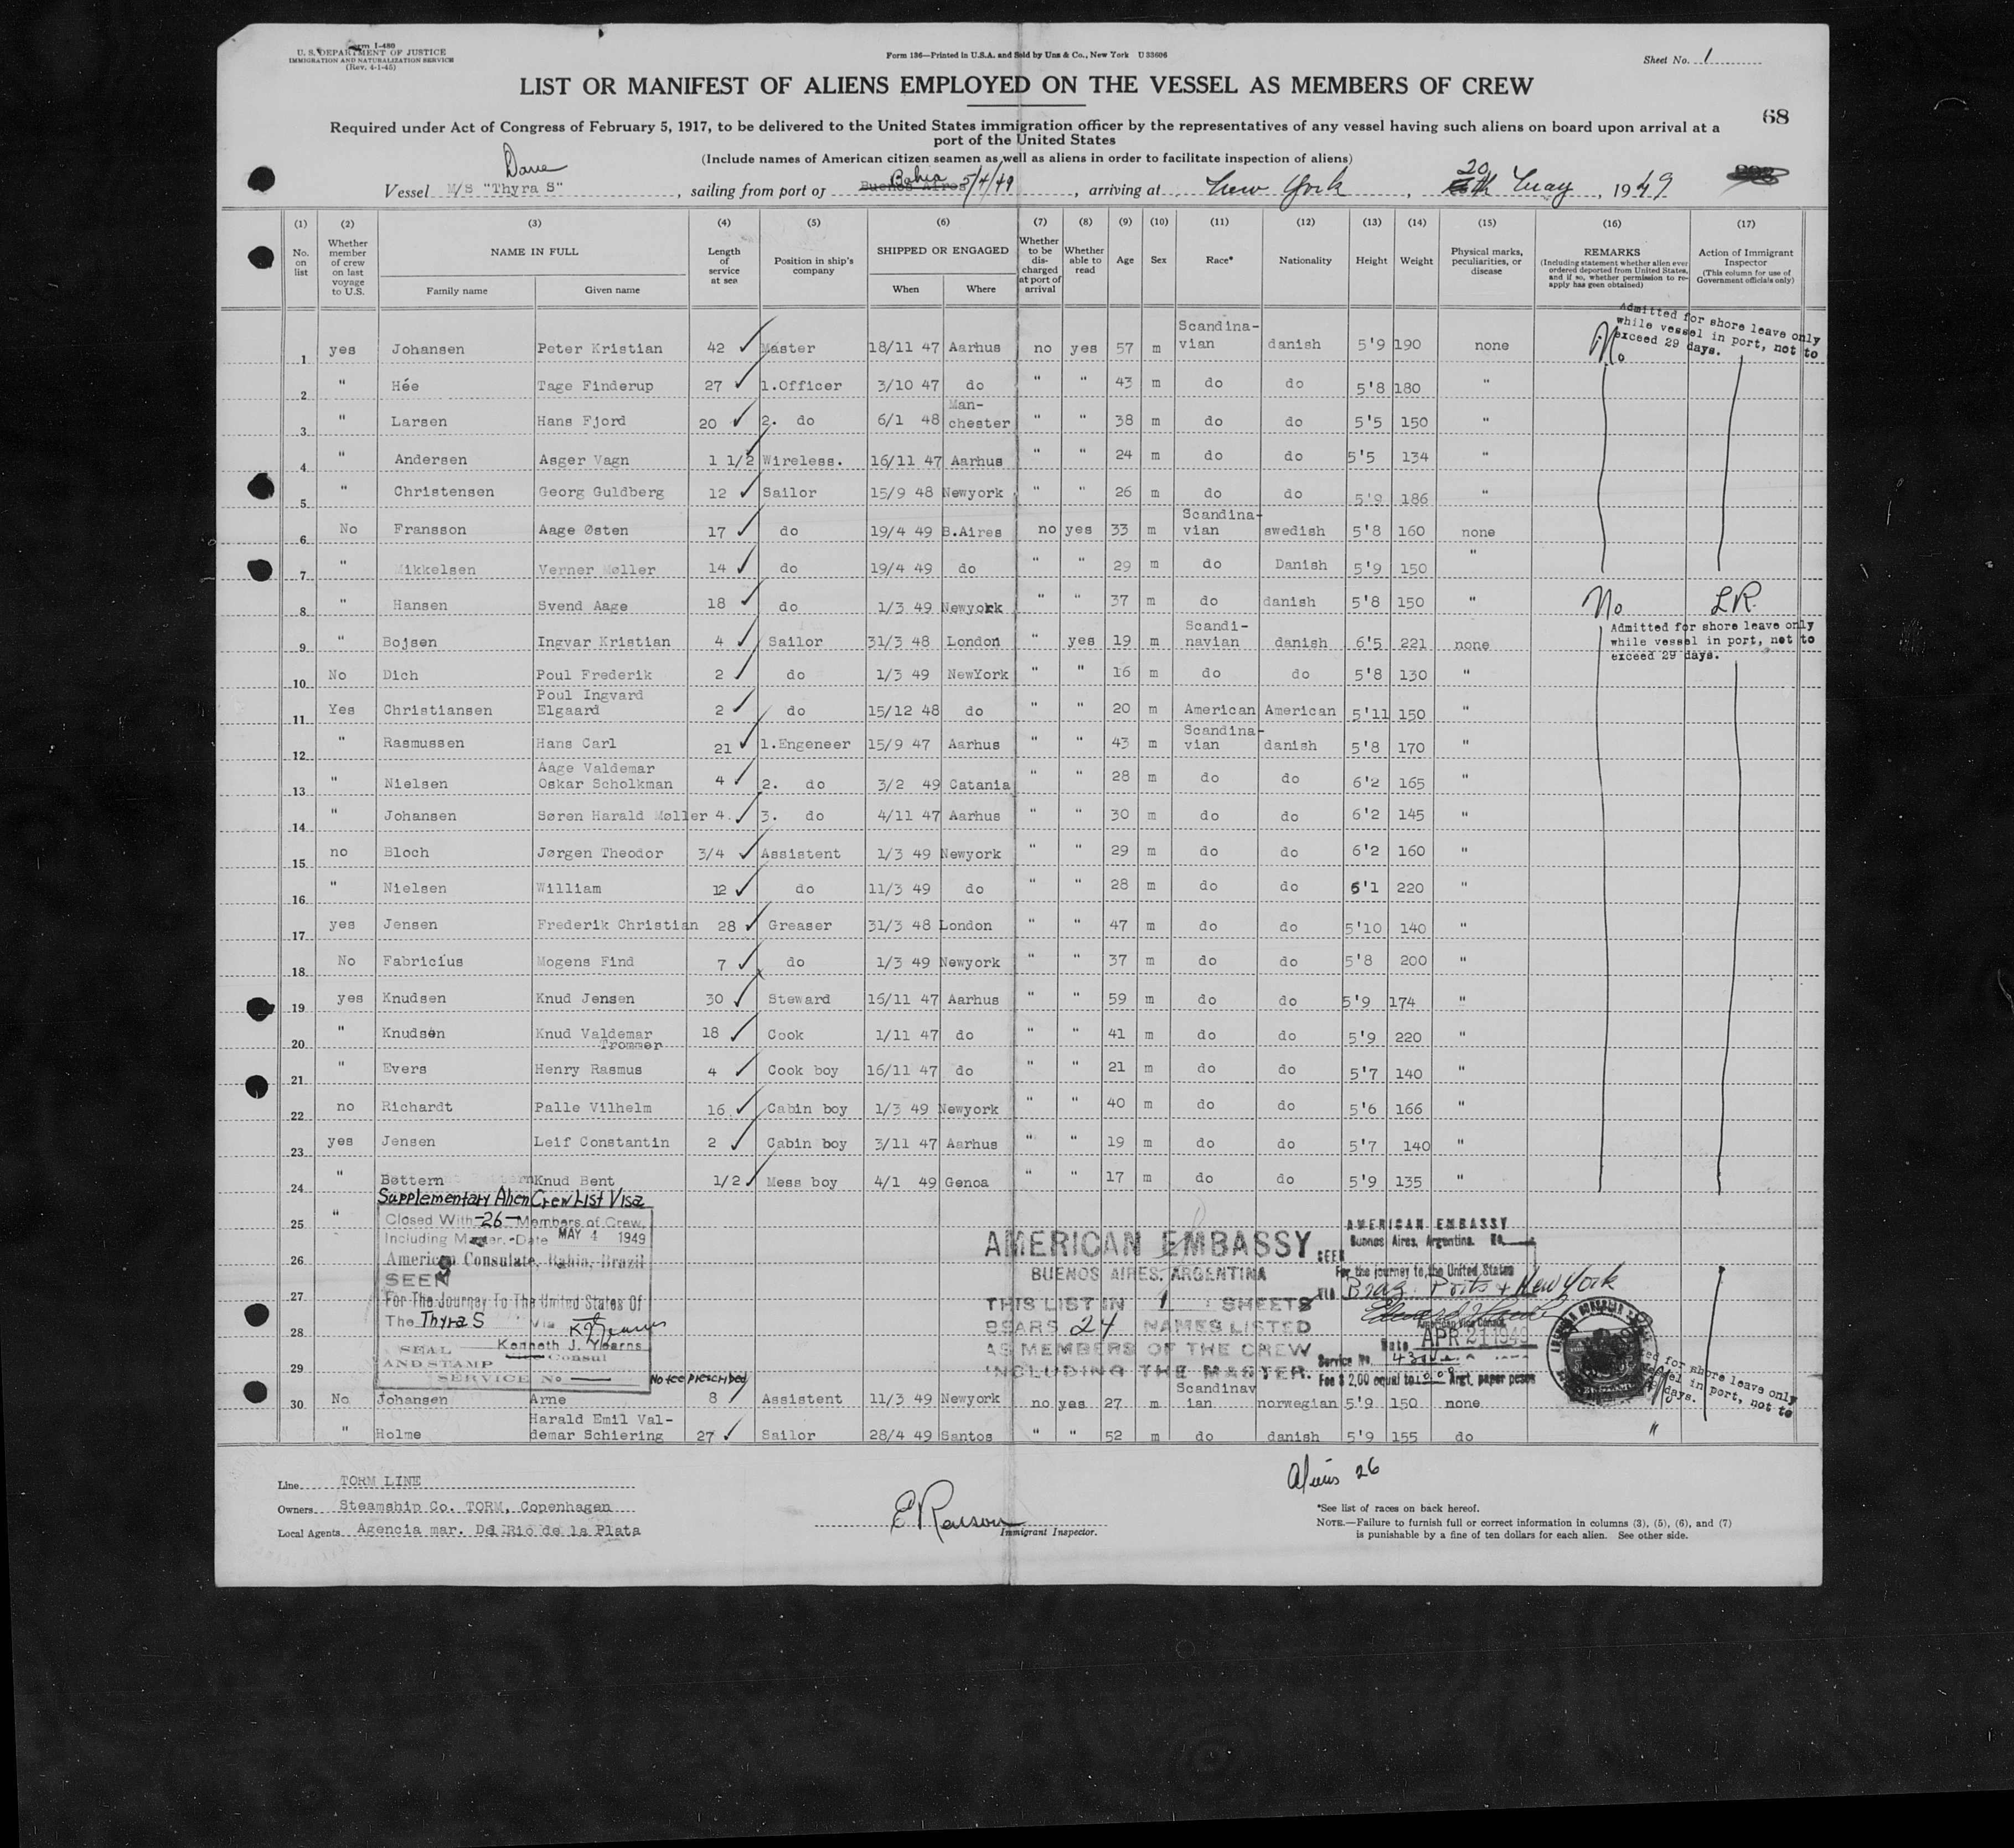 Form I-480
U. S. DEPARTMENT OF JUSTICE
IMMIGRATION AND NATURALIZATION SERVICE
(Rev. 4-1-45)
Form 136—Printed in U.S.A. and Sold by Unz & Co., New York U 33606
Sheet No. 1
LIST OR MANIFEST OF ALIENS EMPLOYED ON THE VESSEL AS MEMBERS OF CREW
68
Required under Act of Congress of February 5, 1917, to be delivered to the United States immigration officer by the representatives of any vessel having such aliens on board upon arrival at a
port of the United States
(Include names of American citizen seamen as well as aliens in order to facilitate inspection of aliens)
Dane
Vessel M/S "Thyra S", sailing from port of Buenos Aires Bahia 5/4/49, arriving at New York, 20 th May, 1949
(1) (2) (3) (4) (5) (6) (7) (8) (9) (10) (11) (12) (13) (14) (15) (16) (17)
No. on list
Whether member of crew on last voyage to U.S.
NAME IN FULL
Family name
Given name
Length of service at sea
Position in ship's company
SHIPPED OR ENGAGED
When
Where
Whether to be discharged at port of arrival
Whether able to read
Age
Sex
Race*
Nationality
Height
Weight
Physical marks, peculiarities, or disease
REMARKS
(Including statement whether alien ever ordered deported from United States, and if so, whether permission to re-apply has geen obtained)
Action of Immigrant Inspector
(This column for use of Government officials only)
Admitted for shore leave only
while vessel in port, not to
exceed 29 days.
1 yes Johansen Peter Kristian 42 Master 18/11 47 Aarhus no yes 57 m Scandina-vian danish 5'9 190 none No
2 " Hée Tage Finderup 27 1.Officer 3/10 47 do " " 43 m do do 5'8 180 "
3 " Larsen Hans Fjord 20 2. do 6/1 48 Man-chester " " 38 m do do 5'5 150 "
4 " Andersen Asger Vagn 1 1/2 Wireless. 16/11 47 Aarhus " " 24 m do do 5'5 134 "
5 " Christensen Georg Guldberg 12 Sailor 15/9 48 Newyork " " 26 m do do 5'9 186 "
6 No Fransson Aage Østen 17 do 19/4 49 B.Aires no yes 33 m Scandina-vian swedish 5'8 160 none
7 " Mikkelsen Verner Møller 14 do 19/4 49 do " " 29 m do Danish 5'9 150 "
8 " Hansen Svend Aage 18 do 1/3 49 Newyork " " 37 m do danish 5'8 150 " No LR.
Admitted for shore leave only
while vessel in port, not to
exceed 29 days.
9 " Bojsen Ingvar Kristian 4 Sailor 31/3 48 London " yes 19 m Scandi-navian danish 6'5 221 none
10 No Dich Poul Frederik 2 do 1/3 49 NewYork " " 16 m do do 5'8 130 "
11 Yes Christiansen Poul Ingvard Elgaard 2 do 15/12 48 do " " 20 m American American 5'11 150 "
12 " Rasmussen Hans Carl 21 1.Engeneer 15/9 47 Aarhus " " 43 m Scandina-vian danish 5'8 170 "
13 " Nielsen Aage Valdemar Oskar Scholkman 4 2. do 3/2 49 Catania " " 28 m do do 6'2 165 "
14 " Johansen Søren Harald Møller 4. 3. do 4/11 47 Aarhus " " 30 m do do 6'2 145 "
15 no Bloch Jørgen Theodor 3/4 Assistent 1/3 49 Newyork " " 29 m do do 6'2 160 "
16 " Nielsen William 12 do 11/3 49 do " " 28 m do do 6'1 220 "
17 yes Jensen Frederik Christian 28 Greaser 31/3 48 London " " 47 m do do 5'10 140 "
18 No Fabricius Mogens Find 7 do 1/3 49 Newyork " " 37 m do do 5'8 200 "
19 yes Knudsen Knud Jensen 30 Steward 16/11 47 Aarhus " " 59 m do do 5'9 174 "
20 " Knudsen Knud Valdemar Trommer 18 Cook 1/11 47 do " " 41 m do do 5'9 220 "
21 " Evers Henry Rasmus 4 Cook boy 16/11 47 do " " 21 m do do 5'7 140 "
22 no Richardt Palle Vilhelm 16 Cabin boy 1/3 49 Newyork " " 40 m do do 5'6 166 "
23 yes Jensen Leif Constantin 2 Cabin boy 3/11 47 Aarhus " " 19 m do do 5'7 140 "
24 " Bøttern Knud Bent 1/2 Mess boy 4/1 49 Genoa " " 17 m do do 5'9 135 "
25 "
26
27
28
29
Supplementary Alien Crew List Visa
Closed With -26- Members of Crew,
Including Master. -Date MAY 4 1949
American Consulate, Bahia, Brazil
SEEN
For The Journey To The United States Of
The Thyra S Via
Kenneth J. Yearns
Consul
SEAL
AND STAMP
SERVICE No
No fee prescribed
AMERICAN EMBASSY
BUENOS AIRES, ARGENTINA
THIS LIST IN 1 SHEETS
BEARS 24 NAMES LISTED
AS MEMBERS OF THE CREW
INCLUDING THE MASTER.
AMERICAN EMBASSY
Buenos Aires, Argentina. No.
SEEN
For the journey to the United States
VIA Braz. Ports + New York
American Vice Consul
Date APR 21 1949
Service No.
Fee $ 2,00 equal to Argt. paper pesos
for shore leave only
in port, not to
days.
30 No Johansen Arne 8 Assistent 11/3 49 Newyork no yes 27 m Scandinav ian norwegian 5'9 150 none
" Holme Harald Emil Val-demar Schiering 27 Sailor 28/4 49 Santos " " 52 m do danish 5'9 155 do "
Aliens 26
Line TORM LINE
Owners Steamship Co. TORM, Copenhagen
Local Agents Agencia mar. Del Rio de la Plata
Immigrant Inspector.
*See list of races on back hereof.
NOTE.—Failure to furnish full or correct information in columns (3), (5), (6), and (7)
is punishable by a fine of ten dollars for each alien. See other side.